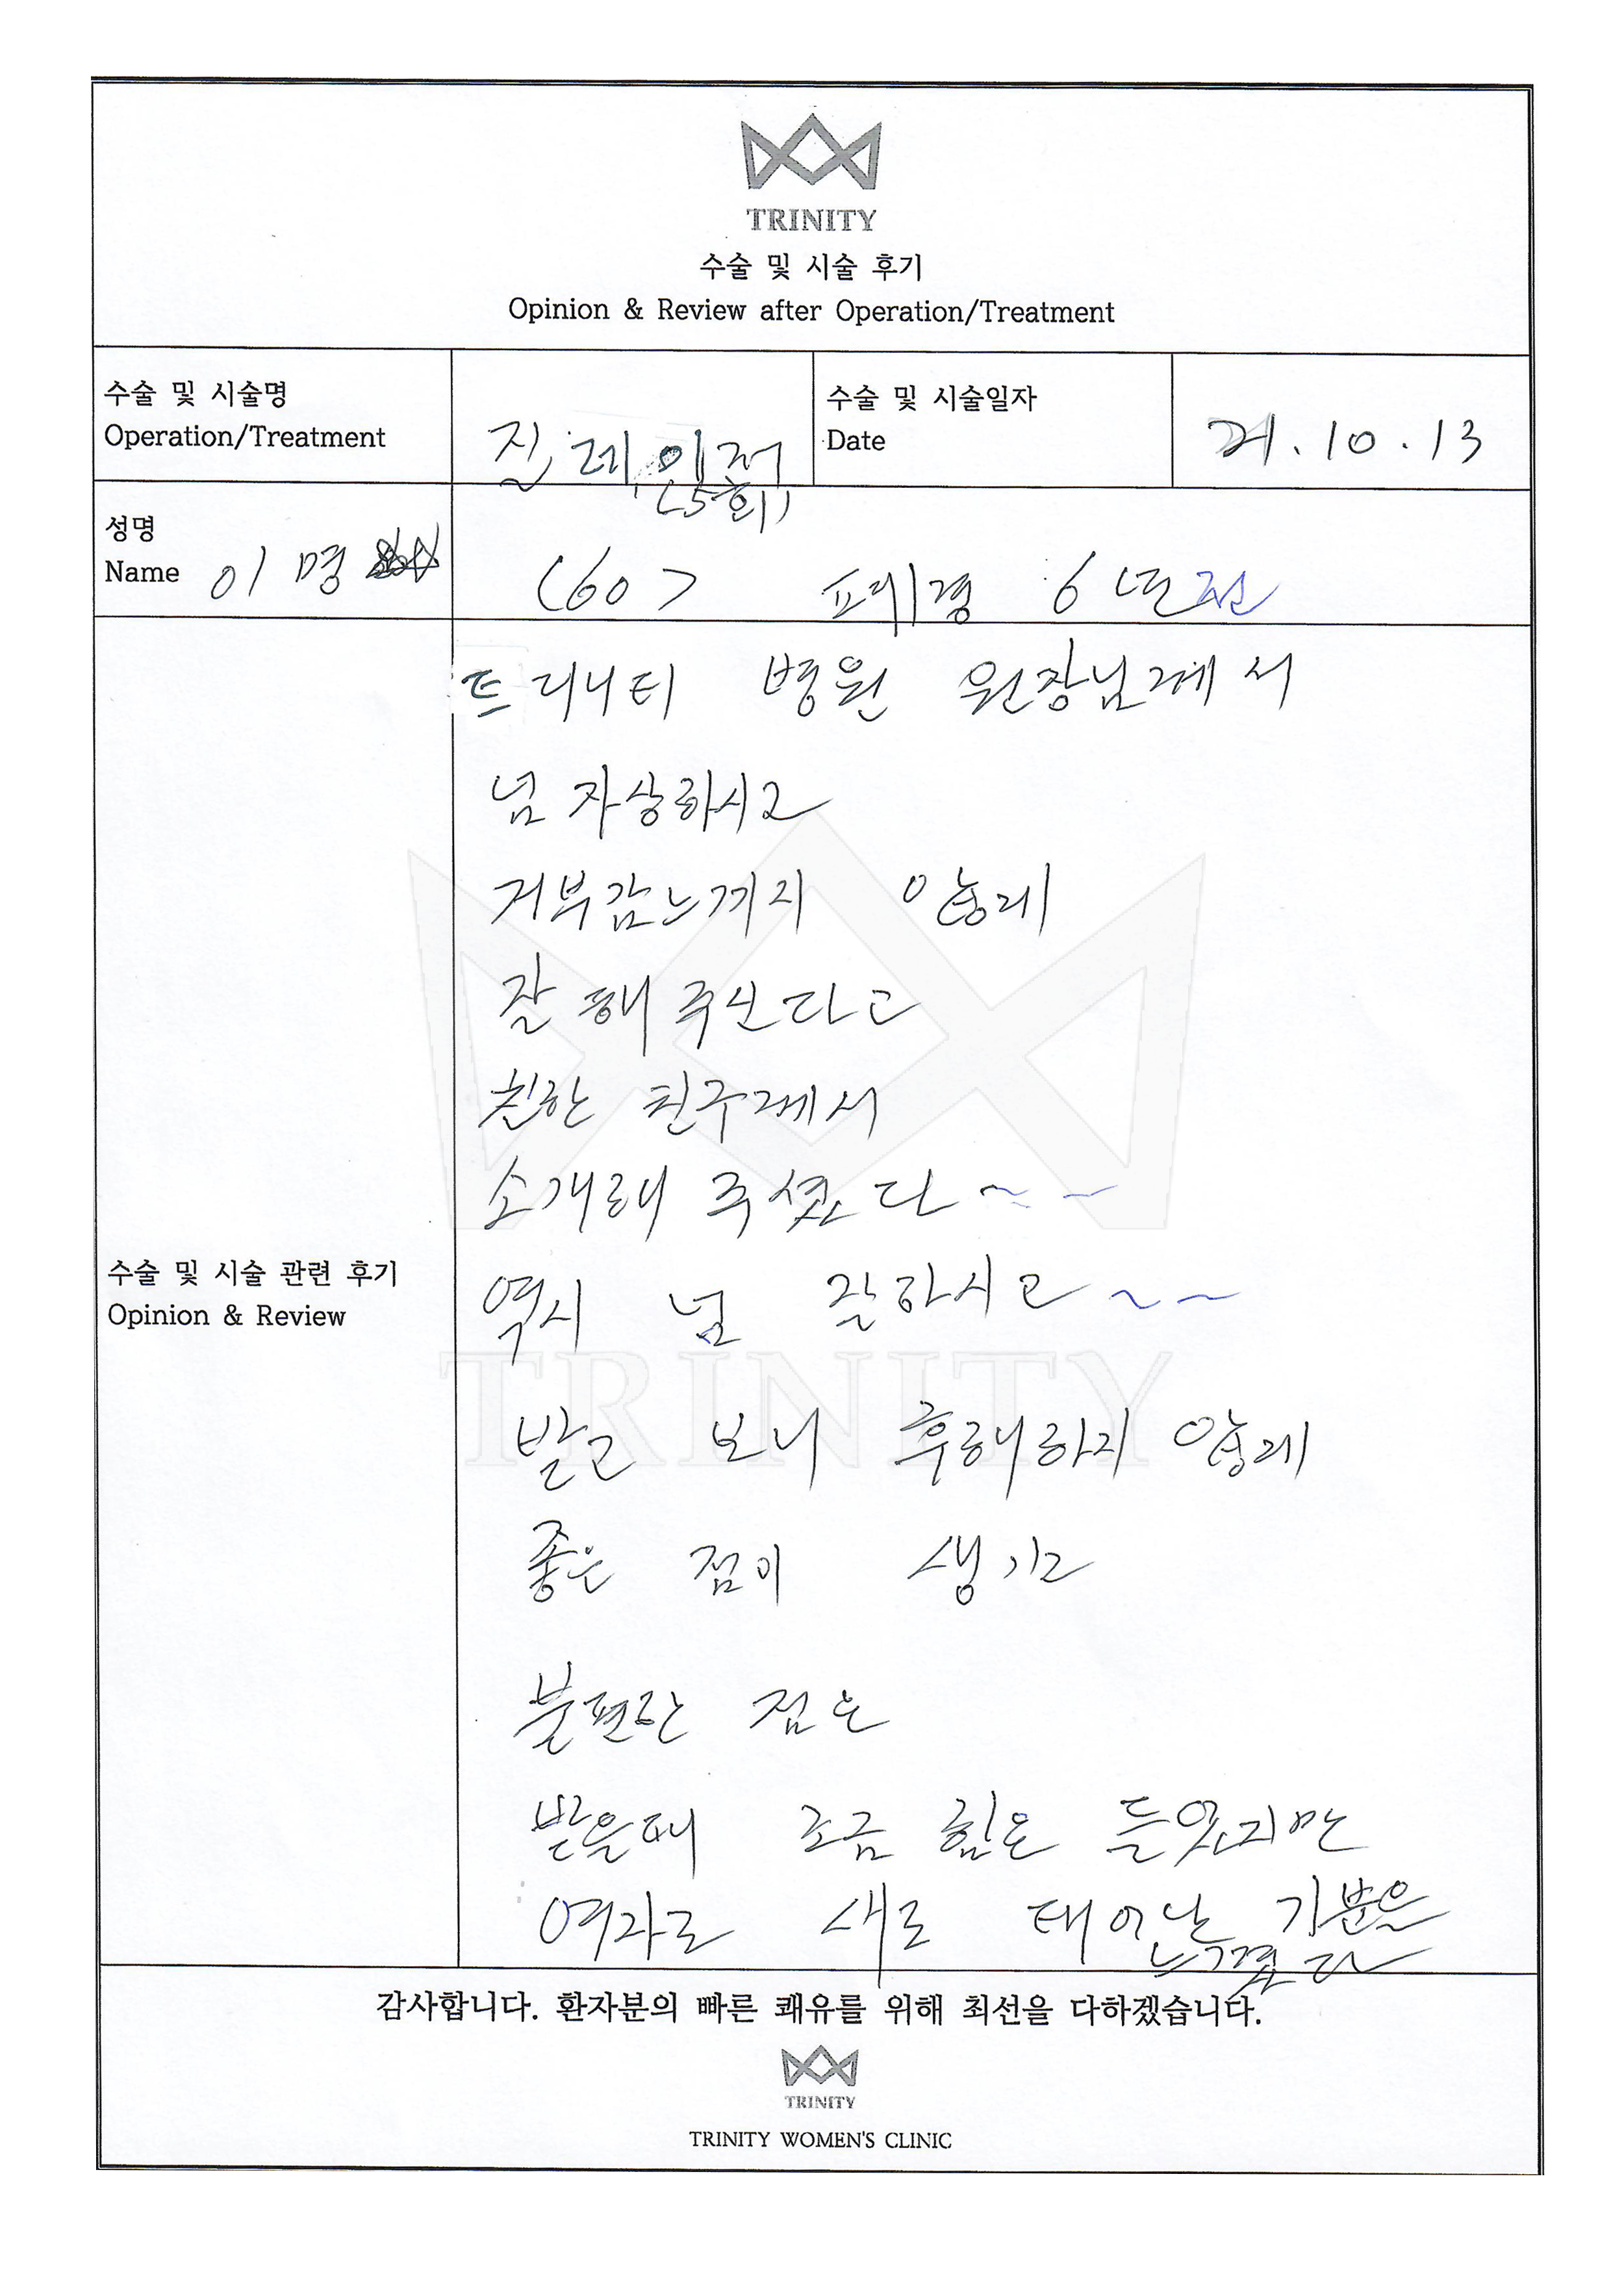 TRINITY
수술 및 시술 후기
Opinion & Review after Operation/Treatment
수술 및 시술명
Operation/Treatment
질 레이저
(5회)
수술 및 시술일자
Date
21.10.13
성명
Name 이 명
(60) 폐경 6년전
수술 및 시술 관련 후기
Opinion & Review
트리니티 병원 원장님께서
넘 자상하시고
거부감느끼지 않게
잘 해 주신다고
친한 친구께서
소개해 주셨다~~
역시 넘 잘하시고~~
받고 보니 후회하지 않게
좋은 점이 생기고
불편한 점은
받을때 조금 힘은 들었지만
여자로 새로 태어난 기분을
느꼈다
TRINITY
감사합니다. 환자분의 빠른 쾌유를 위해 최선을 다하겠습니다.
TRINITY
TRINITY WOMEN'S CLINIC